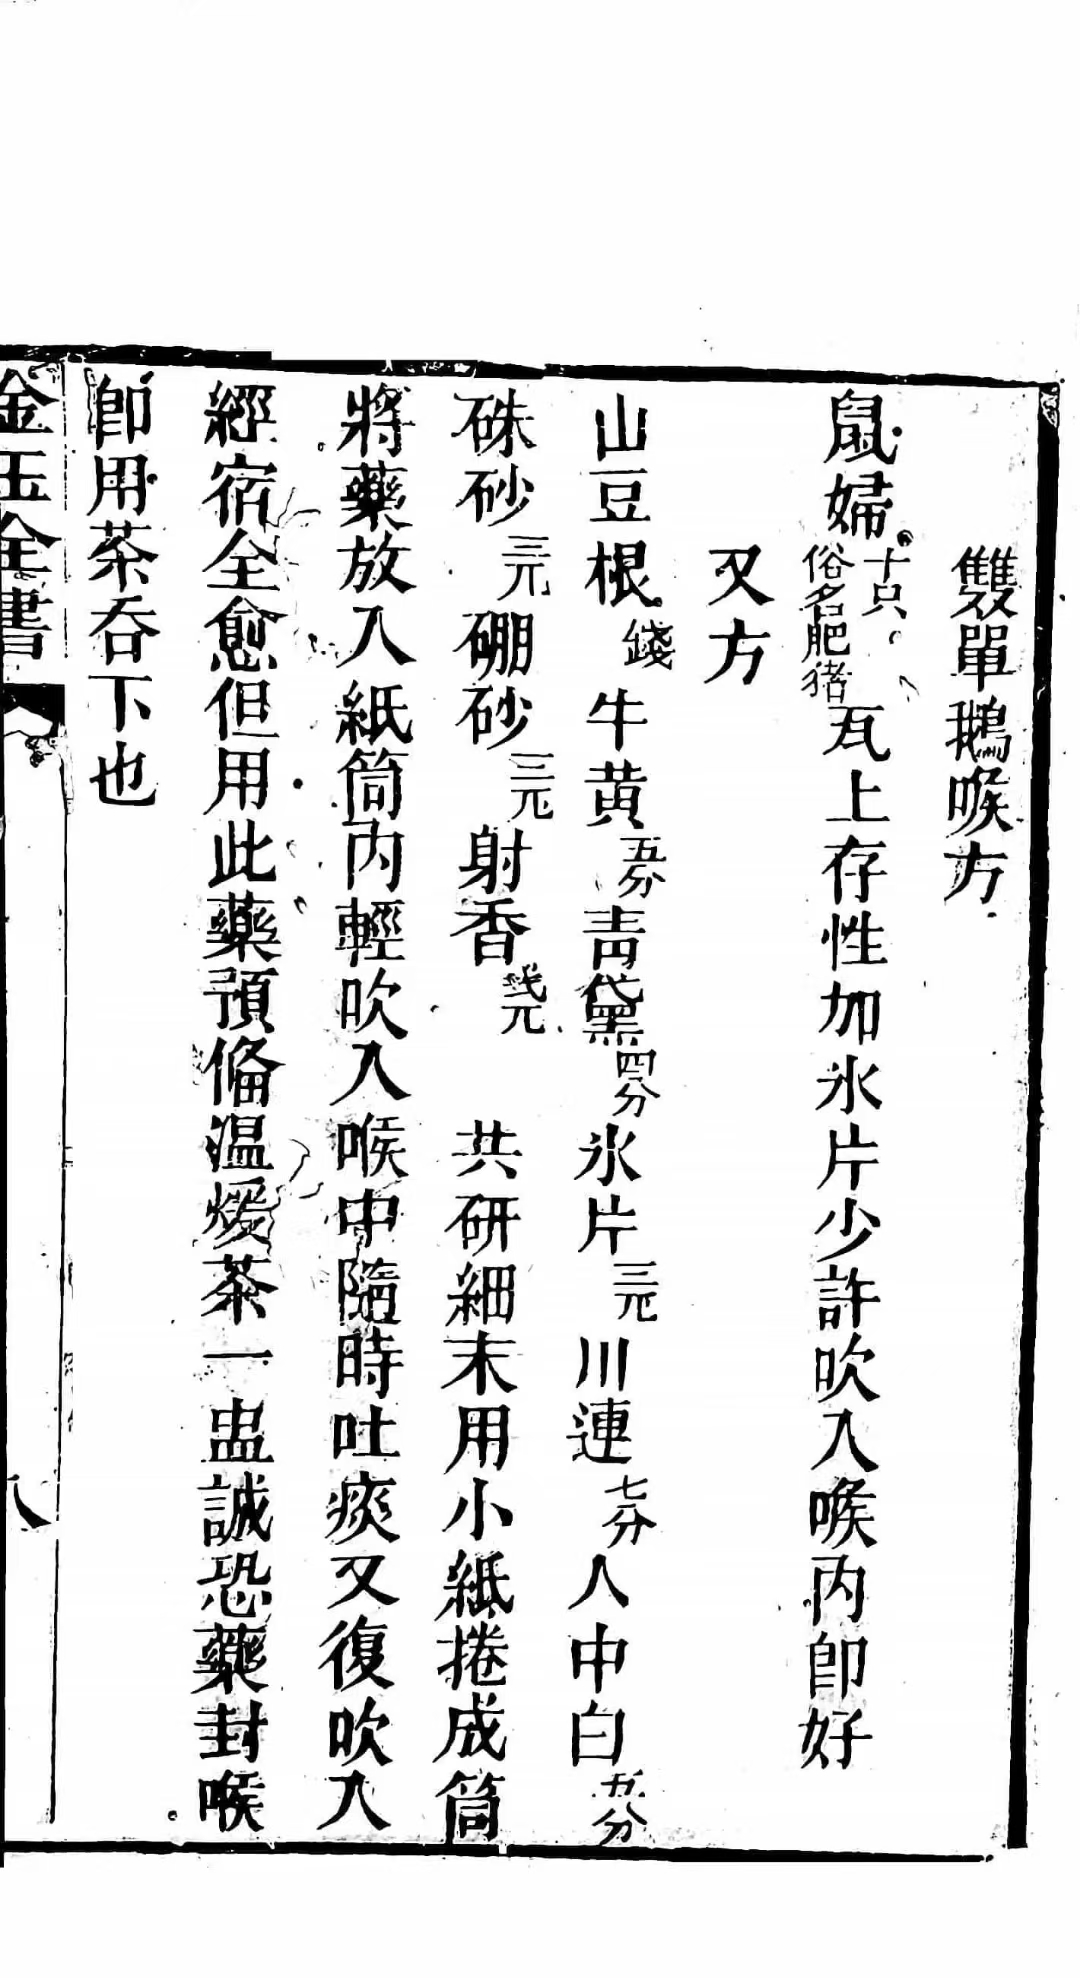 雙單鵝喉方
鼠婦十只俗名肥猪瓦上存性加氷片少許吹入喉內卽好
又方
山豆根錢牛黄五分靑黛四分氷片三兀川連七分人中白五分
硃砂三兀硼砂三兀射香兀共研細末用小紙捲成筒
將藥放入紙筒內輕吹入喉中隨時吐痰又復吹入
經宿全愈但用此藥預俻温煖茶一盅誠恐藥封喉
卽用茶吞下也
金玉全書
八